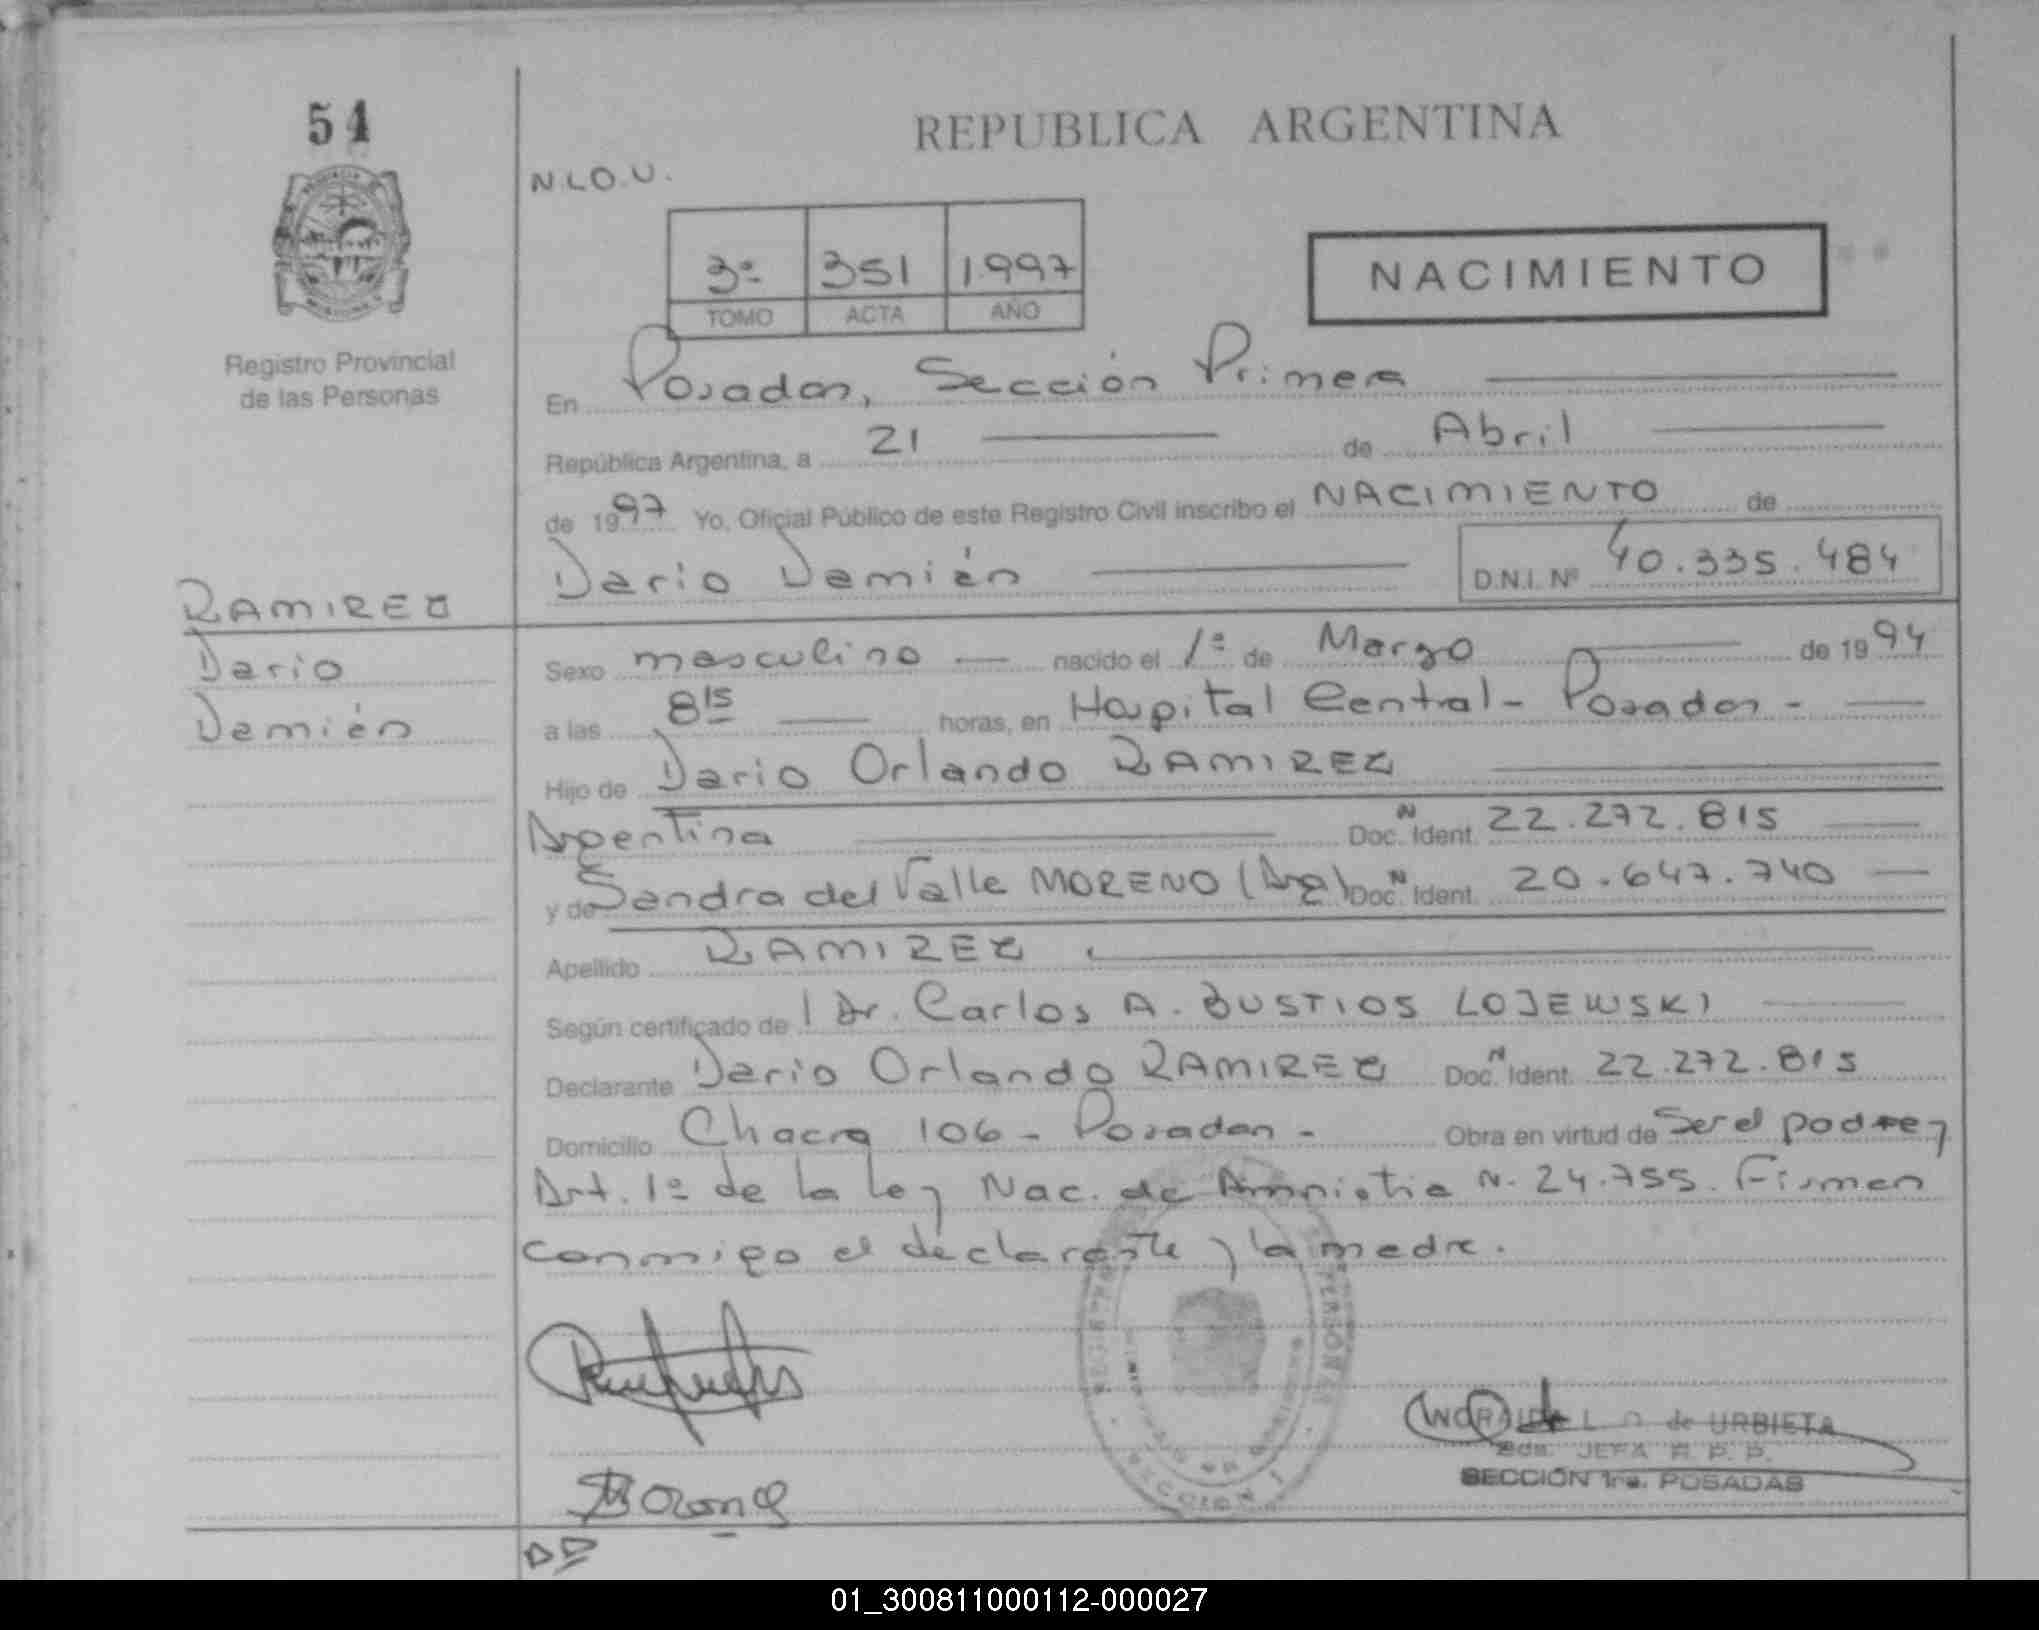 54
REPUBLICA ARGENTINA
N.L.O.U.
3º 351 1.997
TOMO ACTA AÑO
NACIMIENTO
Registro Provincial
de las Personas
En Posadas, Sección Primera
República Argentina, a 21 de Abril
de 1997 Yo, Oficial Público de este Registro Civil inscribo el NACIMIENTO de
Dario Damián D.N.I. Nº 40.335.484
RAMIREZ
Dario
Damián
Sexo masculino nacido el 1º de Marzo de 1994
a las 8 15 horas, en Hospital Central - Posadas -
Hijo de Dario Orlando RAMIREZ
Argentina Doc. N Ident. 22.272.815
y de Sandra del Valle MORENO (Arg) Doc. N Ident. 20.647.740
Apellido RAMIREZ
Según certificado de Dr. Carlos A. BUSTIOS LOJEWSKI
Declarante Dario Orlando RAMIREZ Doc. N Ident. 22.272.815
Domicilio Chacra 106 - Posadas - Obra en virtud de Ser el padre y
Art. 1º de la Ley Nac. de Amnistia N. 24.755. Firman
conmigo el declarante y la madre.
PERSONAS
SECCION 1
L. de URBIETA
JEFA R. P. P.
SECCIÓN 1ra. POSADAS
01_300811000112-000027